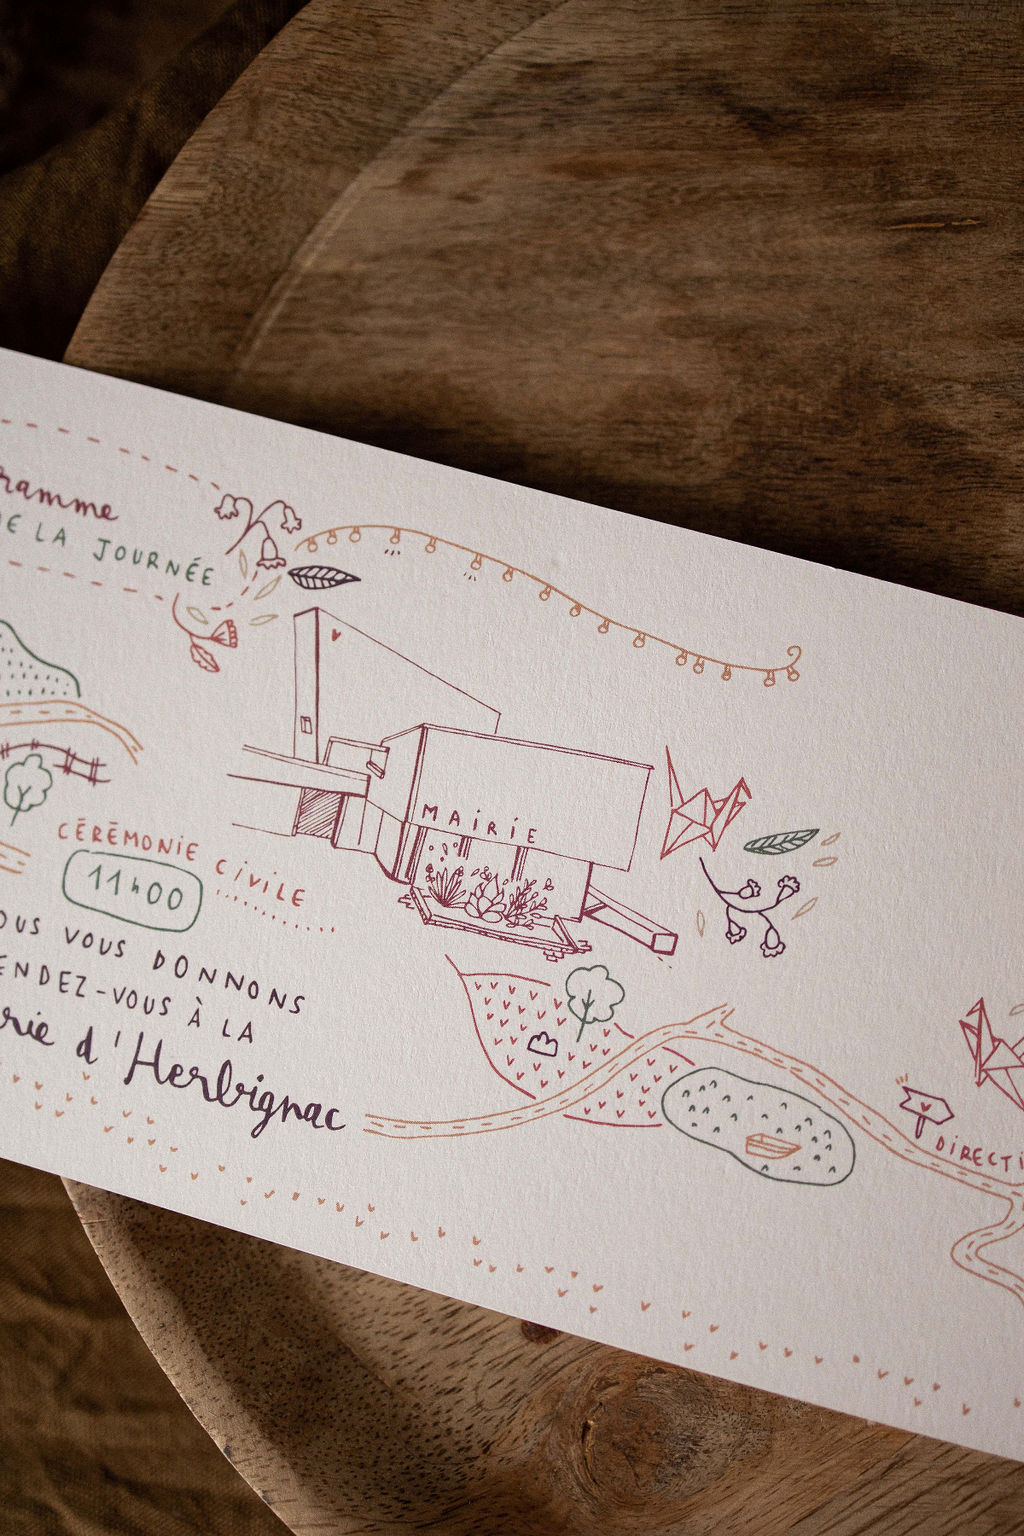 ramme
DE LA JOURNÉE
MAiRiE
CÉRÉMONIE CiViLE
11h00
OUS VOUS DONNONS
ENDEZ-VOUS À LA
rie d'Herbignac
DiRECTi